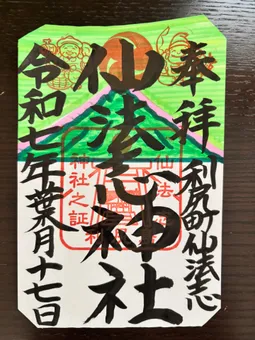 奉拝 利尻町仙法志
仙法志神社
令和七年葉月十七日
神社之証